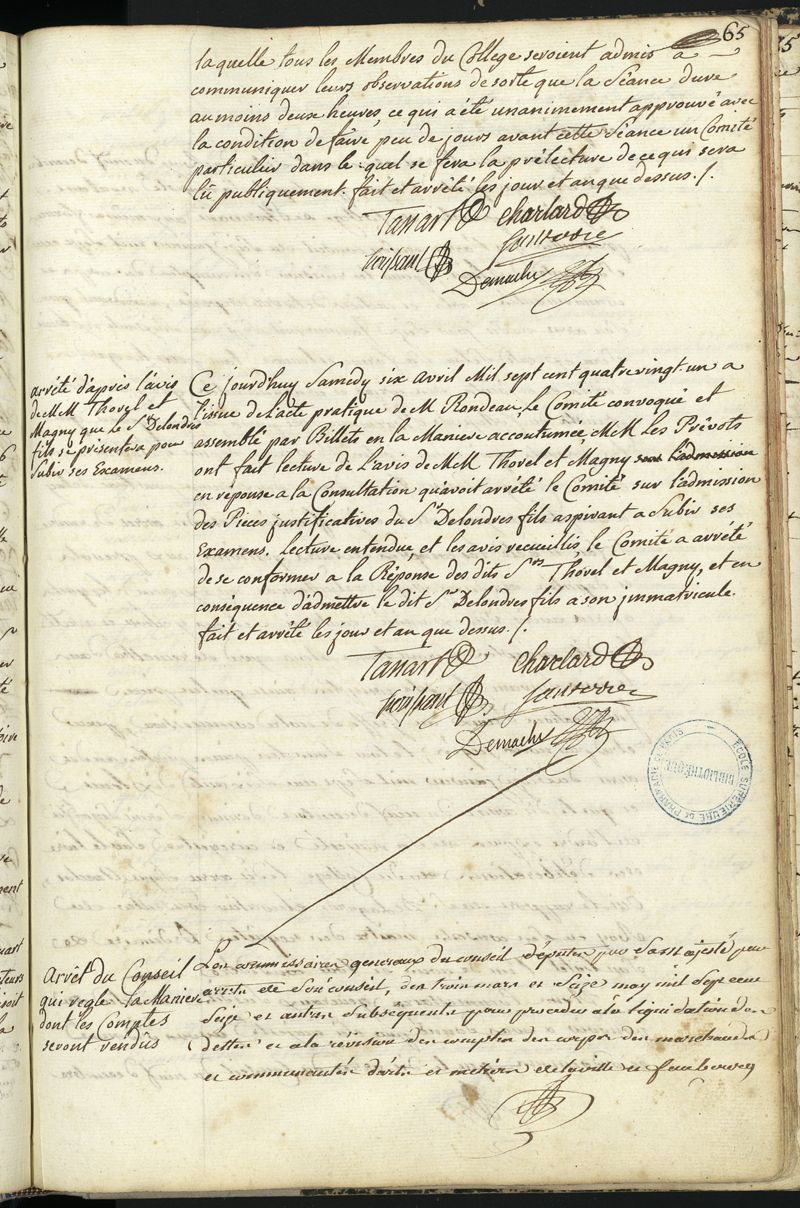 65
laquelle tous les Membres du College seroient admis a
communiquer leurs observations de sorte que la Séance dure
au moins deux heures, ce qui a été unanimement approuvé avec
la condition de faire peu de jours avant cette Séance un Comité
particulier dans le quel se fera la prélecture de ce qui sera
lû publiquement. fait et arrêté les jour et an que dessus. /.
Tassart charlard
Santerre
hérissant
Demachy
arrêté d'après l'avis
de MM Thorel et
Magny que le Sr Delondres
fils se présentera pour
Subir ses Examens.
Ce jourd'huy Samedy six Avril Mil sept cent quatre vingt-un a
l'issue de L'acte pratique de M Rondeau, le Comité convoqué et
assemblé par Billets en la Maniere accoutumée, MM Les Prévots
ont fait lecture de L'avis de MM Thorel et Magny sur l'admission
en réponse a la Consultation qu'avoit arrêté le Comité sur l'admission
des Pièces justificatives du Sr Delondres fils aspirant a Subir ses
Examens. Lecture entendue, et les avis recueillis, le Comité a arrêté
de se conformer a la Réponse des dits Srs Thorel et Magny, et en
conséquence d'admettre le dit Sr Delondres fils a son jmmatricule.
fait et arrêté les jour et an que dessus. /.
Tassart charlard
hérissant Santerre
Demachy
ECOLE SUPERIEURE DE PHARMACIE DE PARIS
BIBLIOTHÈQUE
Arrêt du Conseil
qui regle la Maniere
dont les Comptes
seront rendus
Les commissaires generaux du conseil députés par Sa majesté par
arrets de Son conseil, des trois mars et Seize may mil Sept cent
Seize et autres Subséquents pour proceder a la liquidation des
dettes et a la révision des comptes des corps des marchands
et communautés d'arts et métiers de la ville et fauxbourgs